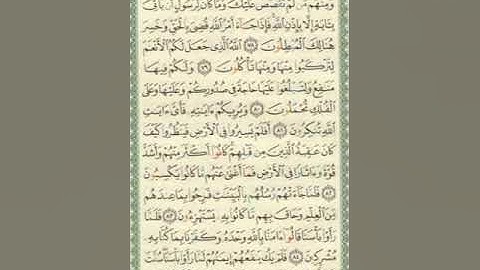 وَمِنْهُم مَّن لَّمْ نَقْصُصْ عَلَيْكَ وَمَا كَانَ لِرَسُولٍ أَن يَأْتِىَ
بِـَٔايَةٍ إِلَّا بِإِذْنِ ٱللَّهِ فَإِذَا جَآءَ أَمْرُ ٱللَّهِ قُضِىَ بِٱلْحَقِّ وَخَسِرَ
هُنَالِكَ ٱلْمُبْطِلُونَ ٧٨ ٱللَّهُ ٱلَّذِى جَعَلَ لَكُمُ ٱلْأَنْعَٰمَ
لِتَرْكَبُوا۟ مِنْهَا وَمِنْهَا تَأْكُلُونَ ٧٩ وَلَكُمْ فِيهَا
مَنَٰفِعُ وَلِتَبْلُغُوا۟ عَلَيْهَا حَاجَةً فِى صُدُورِكُمْ وَعَلَيْهَا وَعَلَى
ٱلْفُلْكِ تُحْمَلُونَ ٨٠ وَيُرِيكُمْ ءَايَٰتِهِۦ فَأَىَّ ءَايَٰتِ
ٱللَّهِ تُنكِرُونَ ٨١ أَفَلَمْ يَسِيرُوا۟ فِى ٱلْأَرْضِ فَيَنظُرُوا۟ كَيْفَ
كَانَ عَٰقِبَةُ ٱلَّذِينَ مِن قَبْلِهِمْ كَانُوٓا۟ أَكْثَرَ مِنْهُمْ وَأَشَدَّ
قُوَّةً وَءَاثَارًا فِى ٱلْأَرْضِ فَمَآ أَغْنَىٰ عَنْهُم مَّا كَانُوا۟ يَكْسِبُونَ
٨٢ فَلَمَّا جَآءَتْهُمْ رُسُلُهُم بِٱلْبَيِّنَٰتِ فَرِحُوا۟ بِمَا عِندَهُم
مِّنَ ٱلْعِلْمِ وَحَاقَ بِهِم مَّا كَانُوا۟ بِهِۦ يَسْتَهْزِءُونَ ٨٣ فَلَمَّا
رَأَوْا۟ بَأْسَنَا قَالُوٓا۟ ءَامَنَّا بِٱللَّهِ وَحْدَهُۥ وَكَفَرْنَا بِمَا كُنَّا بِهِۦ
مُشْرِكِينَ ٨٤ فَلَمْ يَكُ يَنفَعُهُمْ إِيمَٰنُهُمْ لَمَّا رَأَوْا۟ بَأْسَنَا سُنَّتَ